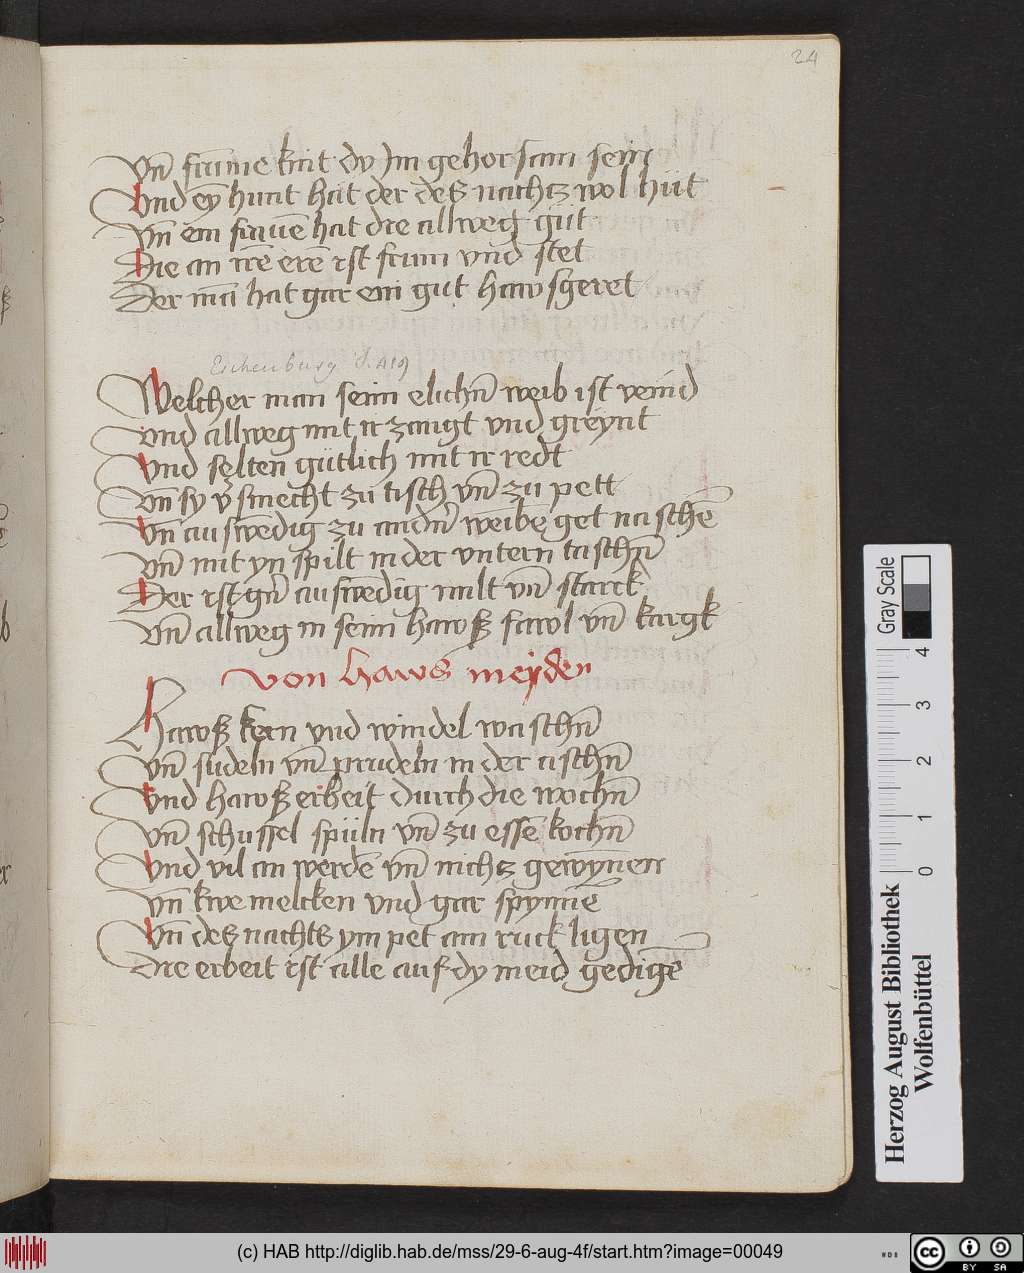 24
Vn̄ frūme kint dy Im gehorsam sein
Vnd eÿ hunt hat der detz nachtz wol hüt
Vn̄ ein frauē hat die allweg güt
Die an irē erē ist frum vnd stet
Der mā hat gar ein gut hawsgeret
Eschenburg S. 419
Welcher man seim elichn̄ weib ist veind
vnd allweg mit ir zangt vnd greynt
vnd selten gütlich mit ir redt
Vn̄ sy v̄smecht zu tisch vn̄ zu pett
Vn̄ auswēdig zu andn̄ weibē get naschē
Vn̄ mit yn spilt in der vntern taschn̄
Der ist gn̄ auswēdig milt vn̄ starck
Vn̄ allweg in seim hawß fawl vn̄ kargk
von haws meyden
Hawß kern vnd windel waschn̄
Vn̄ sudeln vn̄ prudeln in der aschn̄
Vnd hawß erbeit durch die wochn̄
Vn̄ schussel spüln vn̄ zu essē kochn̄
Vnd vil an werdē vn̄ nichtz gewynnen
Vn̄ kwe melcken vnd gar spynnē
Vn̄ detz nachtz ym pet am ruck ligen
Die erbeit ist alle auf dy meid gedigē
Gray Scale
0 1 2 3 4
Herzog August Bibliothek
Wolfenbüttel
(c) HAB http://diglib.hab.de/mss/29-6-aug-4f/start.htm?image=00049
WDB
cc BY SA